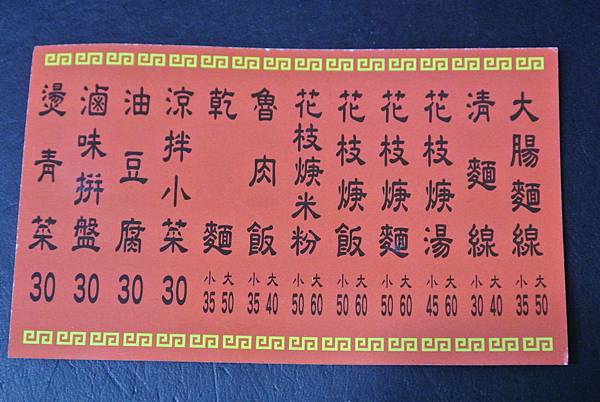 大腸麵線 小35 大50
清麵線 小30 大40
花枝焿湯 小45 大60
花枝焿麵 小50 大60
花枝焿飯 小50 大60
花枝焿米粉 小50 大60
魯肉飯 小35 大40
乾麵 小35 大50
涼拌小菜 30
油豆腐 30
滷味拼盤 30
燙青菜 30